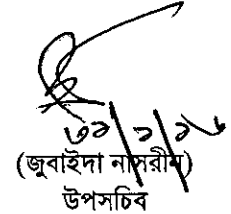 ৩১/১/১৬
(জুবাইদা নাসরীন)
উপসচিব